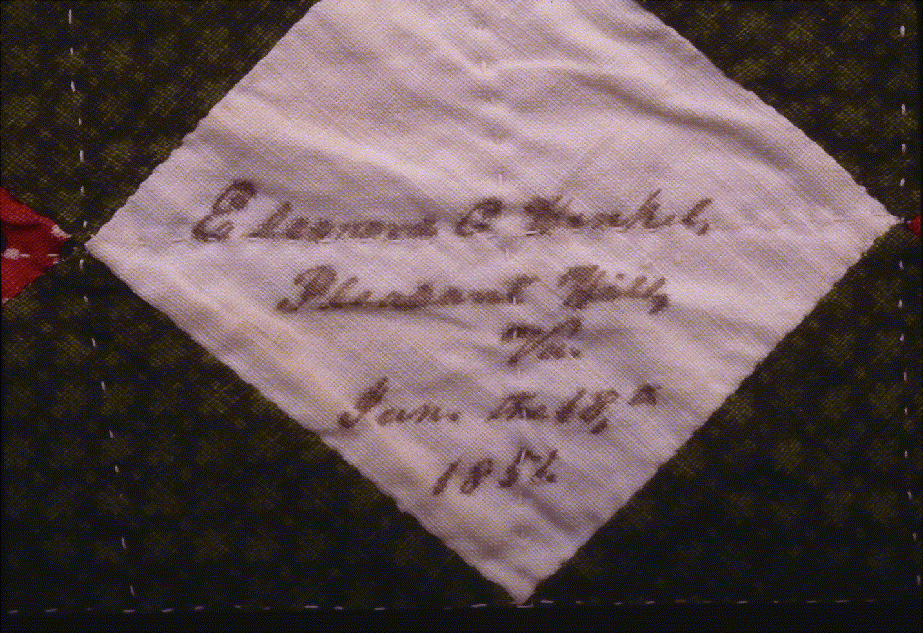 Eleanora C Henkel,
Pleasant Hill,
Va.
Jan. the 18,th
185